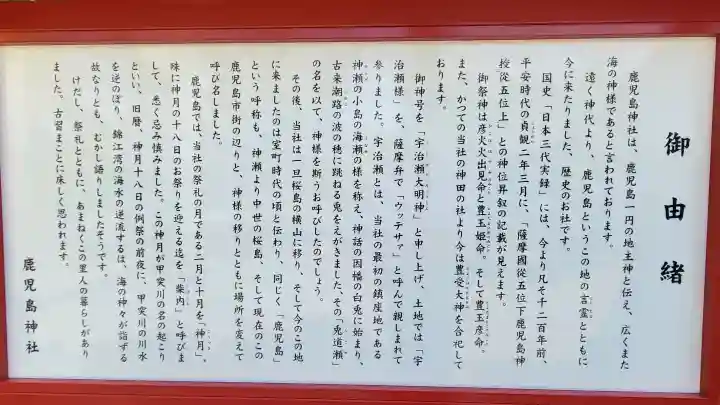 御由緒
鹿児島神社は、鹿児島一円の地主神と伝え、広くまた
海の神様であると言われております。
遠く神代より、鹿児島というこの地の言霊とともに
今に来たりました、歴史のお社です。
国史「日本三代実録」には、今より凡そ千二百年前、
平安時代の貞観二年三月に、「薩摩國從五位下鹿児島神
授從五位上」との神位昇叙の記載が見えます。
御祭神は彦火火出見命と豊玉姫命。そして豊玉彦命。
また、かつての当社の神田の社より今は豊受大神を合祀して
おります。
御神号を「宇治瀬大明神」と申し上げ、土地では「宇
治瀬様」を、薩摩弁で「ウッテサァ」と呼んで親しまれて
参りました。宇治瀬とは、当社の最初の鎮座地である
神瀬の小島の海の瀬の様を称え、神話の因幡の白兎に始まり、
古来潮路の波の穂に跳ねる兎をえがきました、その「兎道瀬」
の名を以て、神様を斯うお呼びしたのでしょう。
その後、当社は一旦桜島の横山に移り、そして今のこの地
に来ましたのは室町時代の頃と伝わり、同じく「鹿児島」
という呼称も、神瀬より中世の桜島、そして現在のこの
鹿児島市街の辺りと、神様の移りとともに場所を変えて
呼び名しました。
鹿児島では、当社の祭礼の月である二月と十月を「神月」、
殊に神月の十八日のお祭りを迎える迄を「柴内」と呼びま
して、悉く忌み慎みました。この神月が甲突川の名の起こり
といい、旧暦、神月十八日の例祭の前夜に、甲突川の川水
を逆のぼり、錦江湾の海水の逆流するは、海の神々が詣ずる
故なりとも、むかし語りしましたそうです。
けだし、祭礼とともに、あまねくこの里人の暮らしがあり
ました。古習まことに床しく思われます。
鹿児島神社